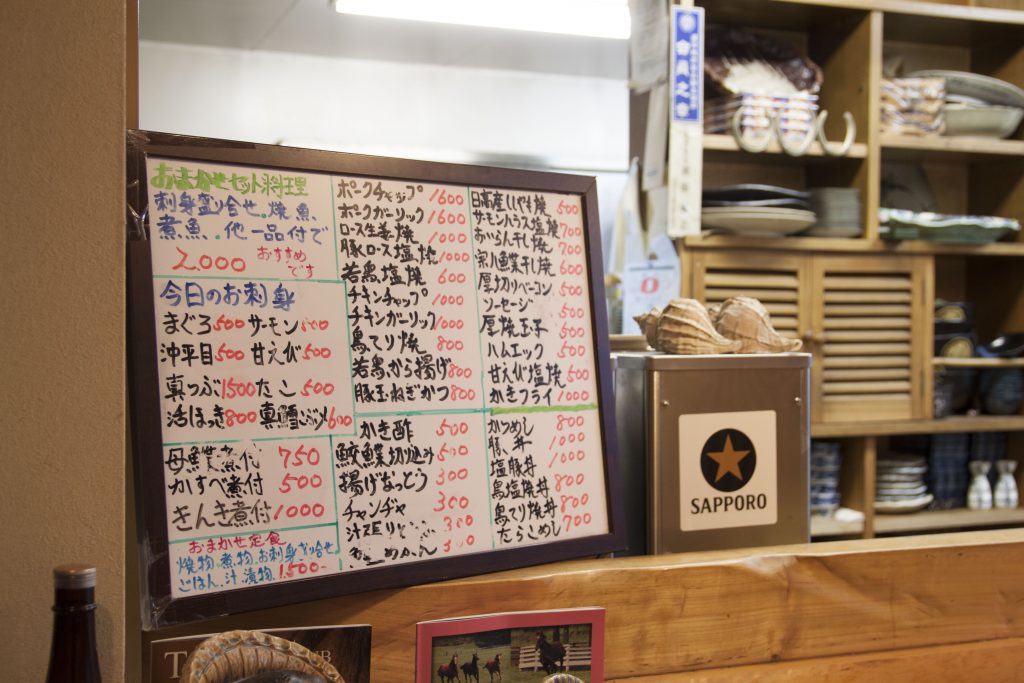 おまかせセット料理
刺身盛り合せ.焼魚.
煮魚.他一品付で
2,000
おすすめ
です
今日のお刺身
まぐろ500 サーモン500
沖平目500 甘えび500
真つぶ1500 たこ 500
活ほっき800 真鱈こぶ〆600
母鰈煮付 750
かすべ煮付 500
きんき煮付 1000
おまかせ定食
焼物.煮物.お刺身盛り合せ
ごはん.汁.漬物.1.500-
ポークチャップ 1600
ポークガーリック 1600
ロース生姜焼 1000
豚ロース塩焼 1000
若鳥塩焼 600
チキンチャップ 1000
チキンガーリック 1000
鳥てり焼 800
若鳥から揚げ 800
豚玉ねぎかつ 800
かき酢 500
鮫鰈切り込み 500
揚げなっとう 300
チャンヂャ 300
300
300
日高産 焼 500
サーモンハラス塩焼 700
おいらん干し焼 700
宗八漁業干し焼 600
厚切りベーコン 500
ソーセージ 500
厚焼玉子 500
ハムエッグ 500
甘えび塩焼 500
かきフライ 1000
かつめし 800
豚丼 1000
塩豚丼 1000
鳥塩焼丼 800
鳥てり焼丼 800
たらこめし 700
SAPPORO
会員之